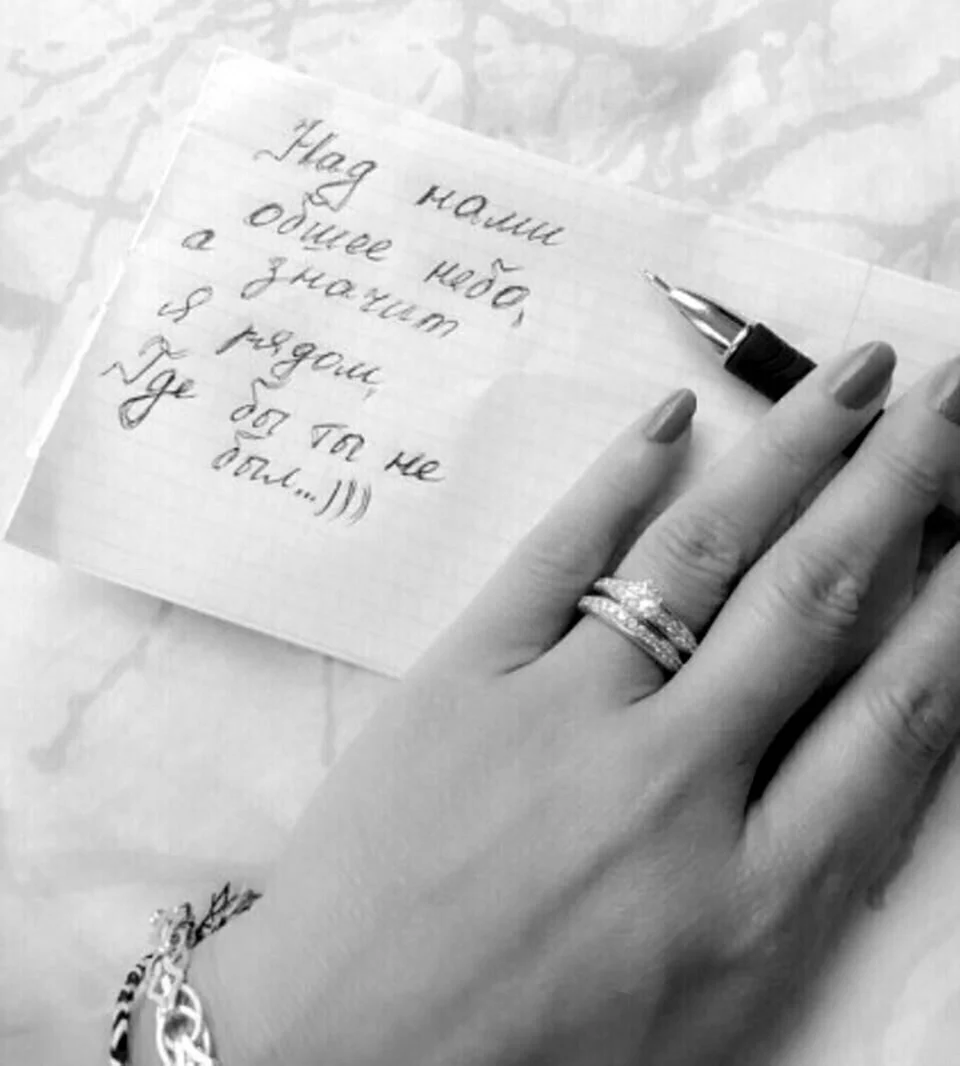 Над нами
общее небо,
а значит
я рядом,
Где бы ты не
был...)))